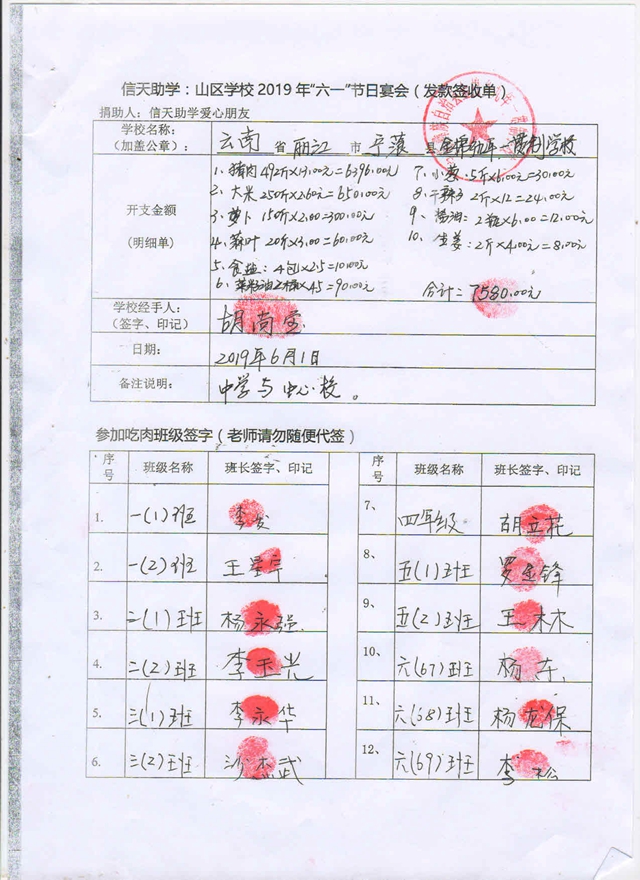 信天助学：山区学校2019年“六一”节日宴会（发款签收单）
捐助人：信天助学爱心朋友
学校名称：
（加盖公章）：
云南 省 丽江 市 宁蒗 县 金棉幼年一贯制学校
开支金额
（明细单）
1、猪肉492斤×13.00=6396.00元
2、大米250斤×2.60=650.00元
3、萝卜150斤×2.00=300.00元
4、 20斤×3.00=60.00元
5、食盐：4包×2.5=10.00元
6、菜籽油2桶×45=90.00元
7、小葱：5斤×6.00=30.00元
8、干辣子2斤×12=24.00元
9、酱油：2瓶×6.00=12.00元
10、生姜：2斤×4.00=8.00元
合计=7580.00元
学校经手人：
（签字、印记）
胡尚
日期：
2019年6月1日
备注说明：
中学与中心校。
参加吃肉班级签字（老师请勿随便代签）
序号 班级名称 班长签字、印记
1. 一(1)班 李发
2. 一(2)班 王
3. 二(1)班 杨永强
4. 二(2)班 李玉光
5. 三(1)班 李永华
6. 三(2)班 沙杰武
序号 班级名称 班长签字、印记
7、 四年级 胡立花
8、 五(1)班 罗金锋
9、 五(2)班 王木木
10、 六(67)班 杨东
11、 六(68)班 杨龙保
12、 六(69)班 李